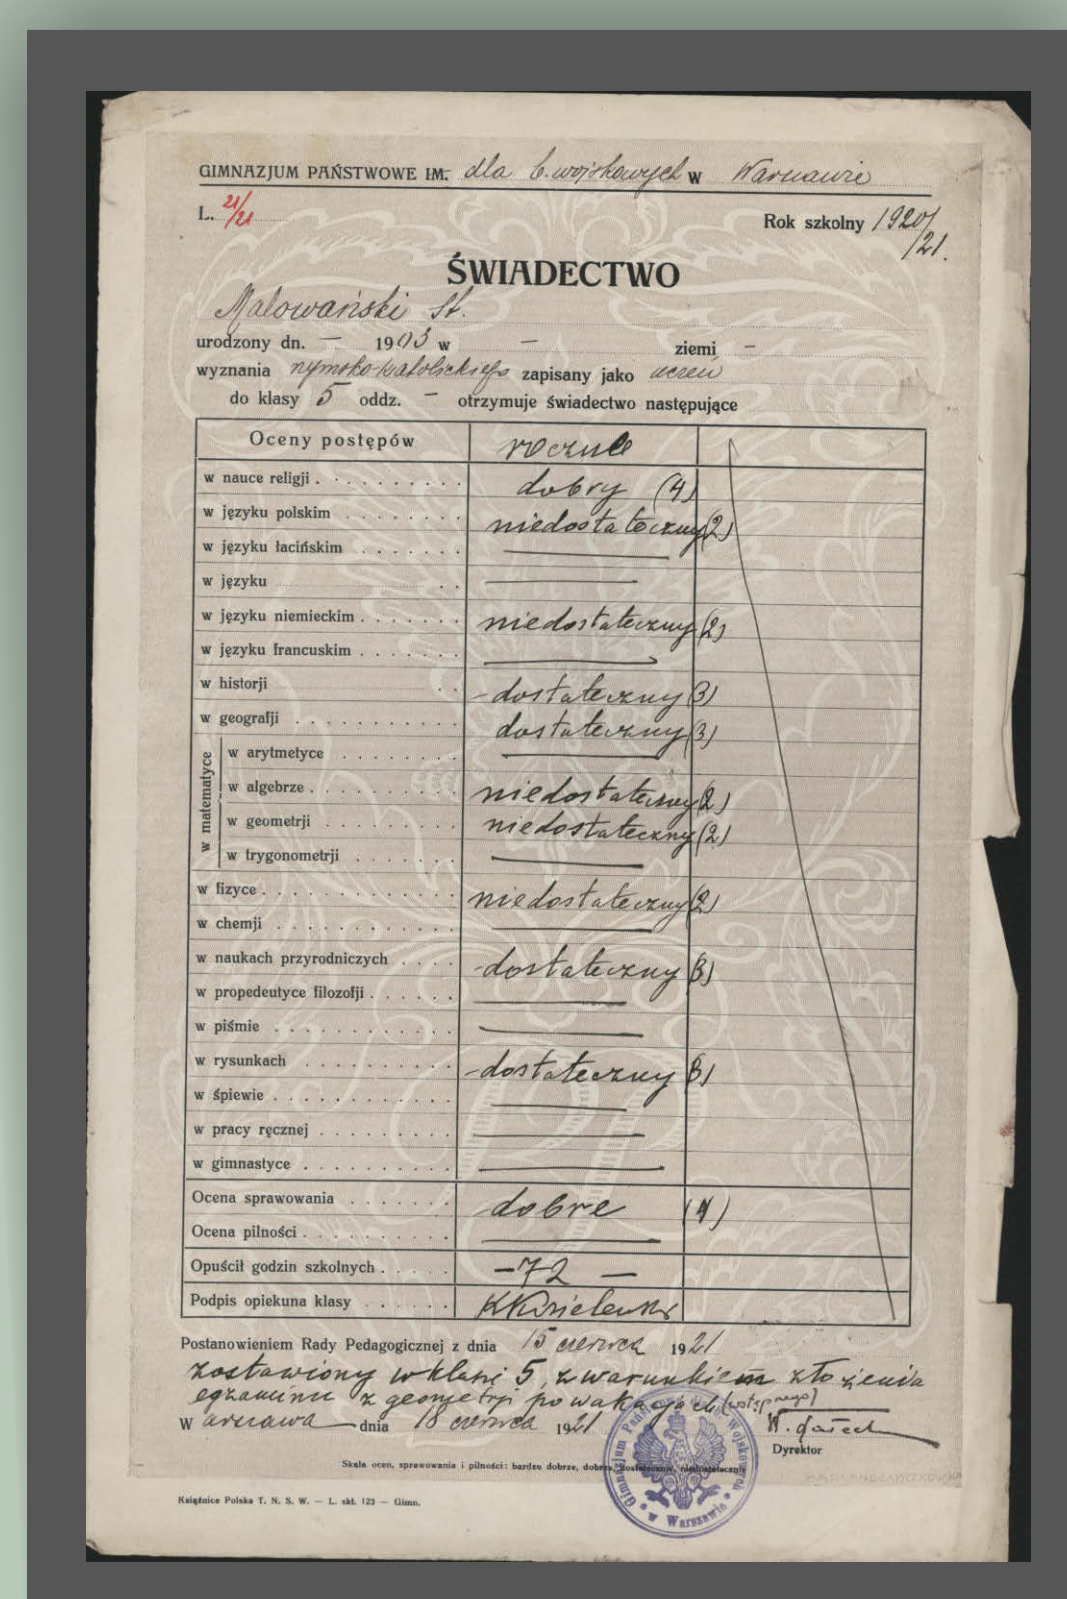 GIMNAZJUM PAŃSTWOWE IM. dla b. wojskowych w Warszawie
L. 21/21
Rok szkolny 1920/21.
ŚWIADECTWO
Malowański St.
urodzony dn. — 1903 w — ziemi —
wyznania rzymsko-katolickiego zapisany jako uczeń
do klasy 5 oddz. — otrzymuje świadectwo następujące
Oceny postępów roczne
w nauce religji dobry (4)
w języku polskim niedostateczny (2)
w języku łacińskim —
w języku —
w języku niemieckim niedostateczny (2)
w języku francuskim —
w historji dostateczny (3)
w geografji dostateczny (3)
w matematyce
w arytmetyce —
w algebrze niedostateczny (2)
w geometrji niedostateczny (2)
w trygonometrji —
w fizyce niedostateczny (2)
w chemji —
w naukach przyrodniczych dostateczny (3)
w propedeutyce filozofji —
w piśmie —
w rysunkach dostateczny (3)
w śpiewie —
w pracy ręcznej —
w gimnastyce —
Ocena sprawowania dobre (4)
Ocena pilności —
Opuścił godzin szkolnych —72—
Podpis opiekuna klasy
Postanowieniem Rady Pedagogicznej z dnia 15 czerwca 1921
zostawiony w klasie 5, z warunkiem złożenia
egzaminu z geometrji po wakacjach (wstępnego)
W arszawa dnia 18 czerwca 1921
Dyrektor
Skala ocen, sprawowania i pilności: bardzo dobrze, dobrze, dostatecznie, niedostatecznie
Książnice Polska T. N. S. W. — L. skł. 123 — Gimn.
Gimnazjum Państw. Wojskowych w Warszawie